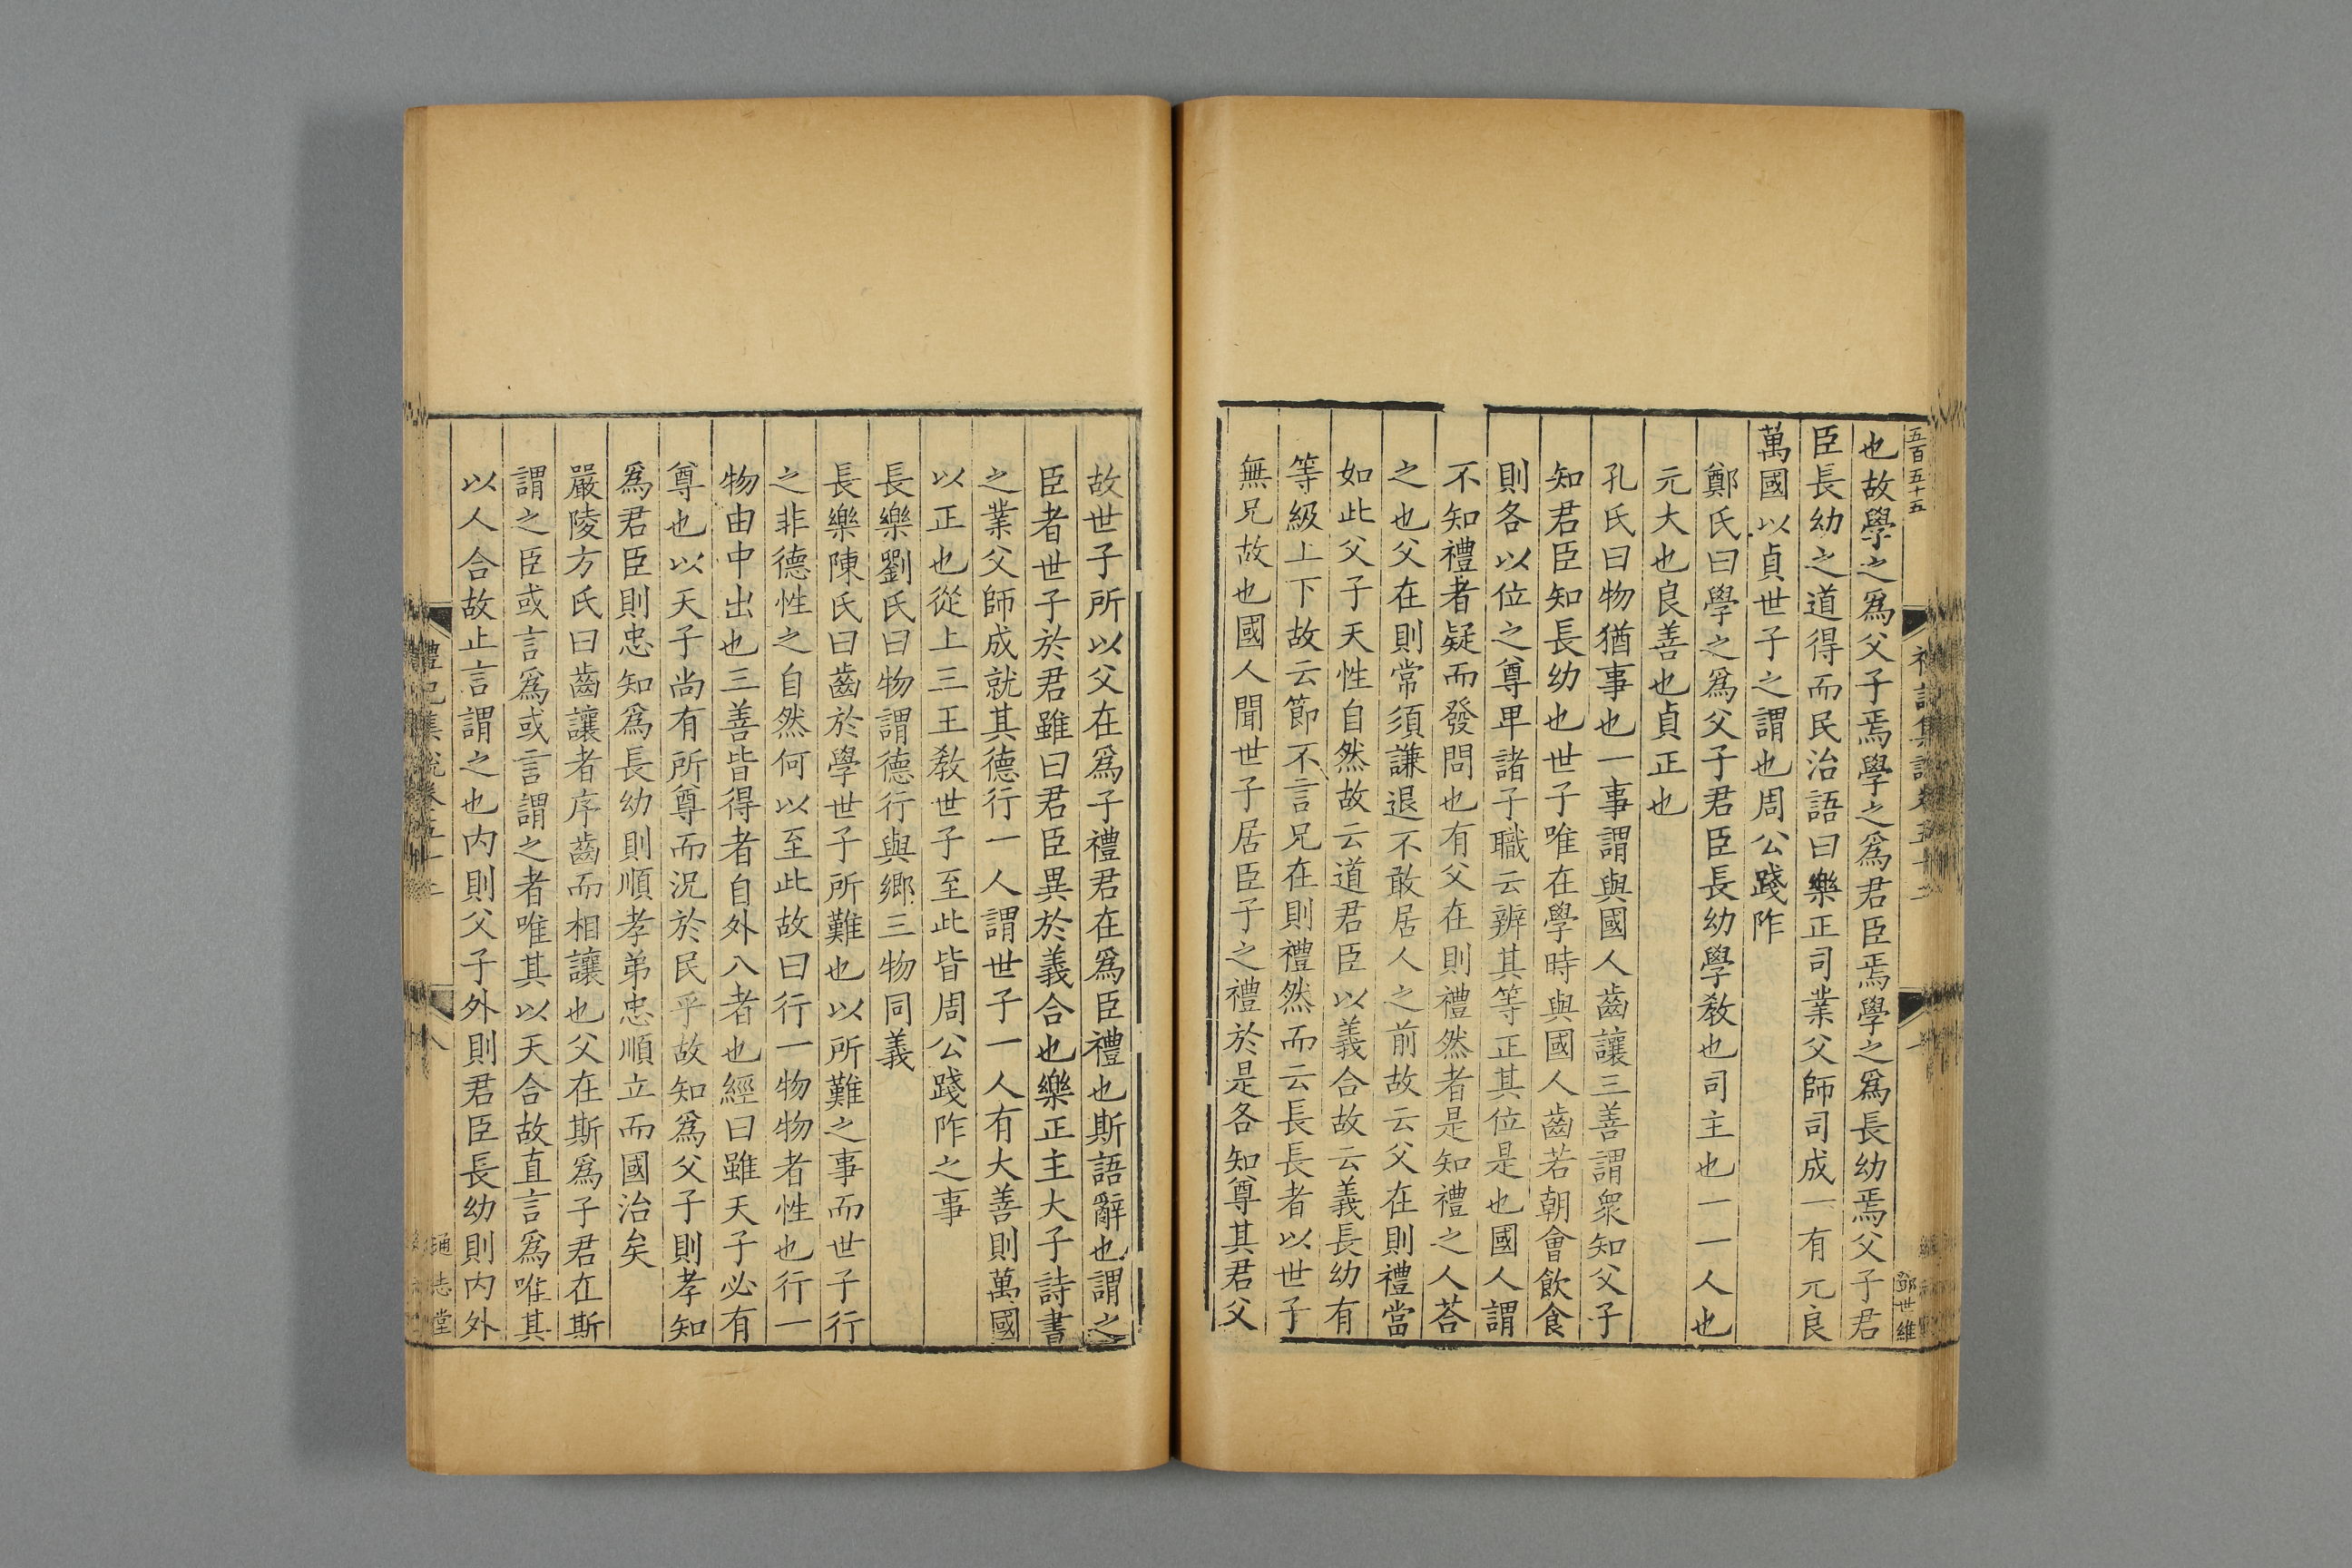 五百五十五
鄧世維
也故學之爲父子焉學之爲君臣焉學之爲長幼焉父子君
臣長幼之道得而民治語曰樂正司業父師司成一有元良
萬國以貞世子之謂也周公踐阼
鄭氏曰學之爲父子君臣長幼學教也司主也一一人也
元大也良善也貞正也
孔氏曰物猶事也一事謂與國人齒讓三善謂衆知父子
知君臣知長幼也世子唯在學時與國人齒若朝會飲食
則各以位之尊卑諸子職云辨其等正其位是也國人謂
不知禮者疑而發問也有父在則禮然者是知禮之人荅
之也父在則常須謙退不敢居人之前故云父在則禮當
如此父子天性自然故云道君臣以義合故云義長幼有
等級上下故云節不言兄在則禮然而云長長者以世子
無兄故也國人聞世子居臣子之禮於是各知尊其君父
故世子所以父在爲子禮君在爲臣禮也斯語辭也謂之
臣者世子於君雖曰君臣異於義合也樂正主大子詩書
之業父師成就其德行一人謂世子一人有大善則萬國
以正也從上三王教世子至此皆周公踐阼之事
長樂劉氏曰物謂德行與鄉三物同義
長樂陳氏曰齒於學世子所難也以所難之事而世子行
之非德性之自然何以至此故曰行一物物者性也行一
物由中出也三善皆得者自外入者也經曰雖天子必有
尊也以天子尚有所尊而況於民乎故知爲父子則孝知
爲君臣則忠知爲長幼則順孝弟忠順立而國治矣
嚴陵方氏曰齒讓者序齒而相讓也父在斯爲子君在斯
謂之臣或言爲或言謂之者唯其以天合故直言爲唯其
以人合故止言謂之也内則父子外則君臣長幼則内外
禮記集說卷五十二
八
通志堂